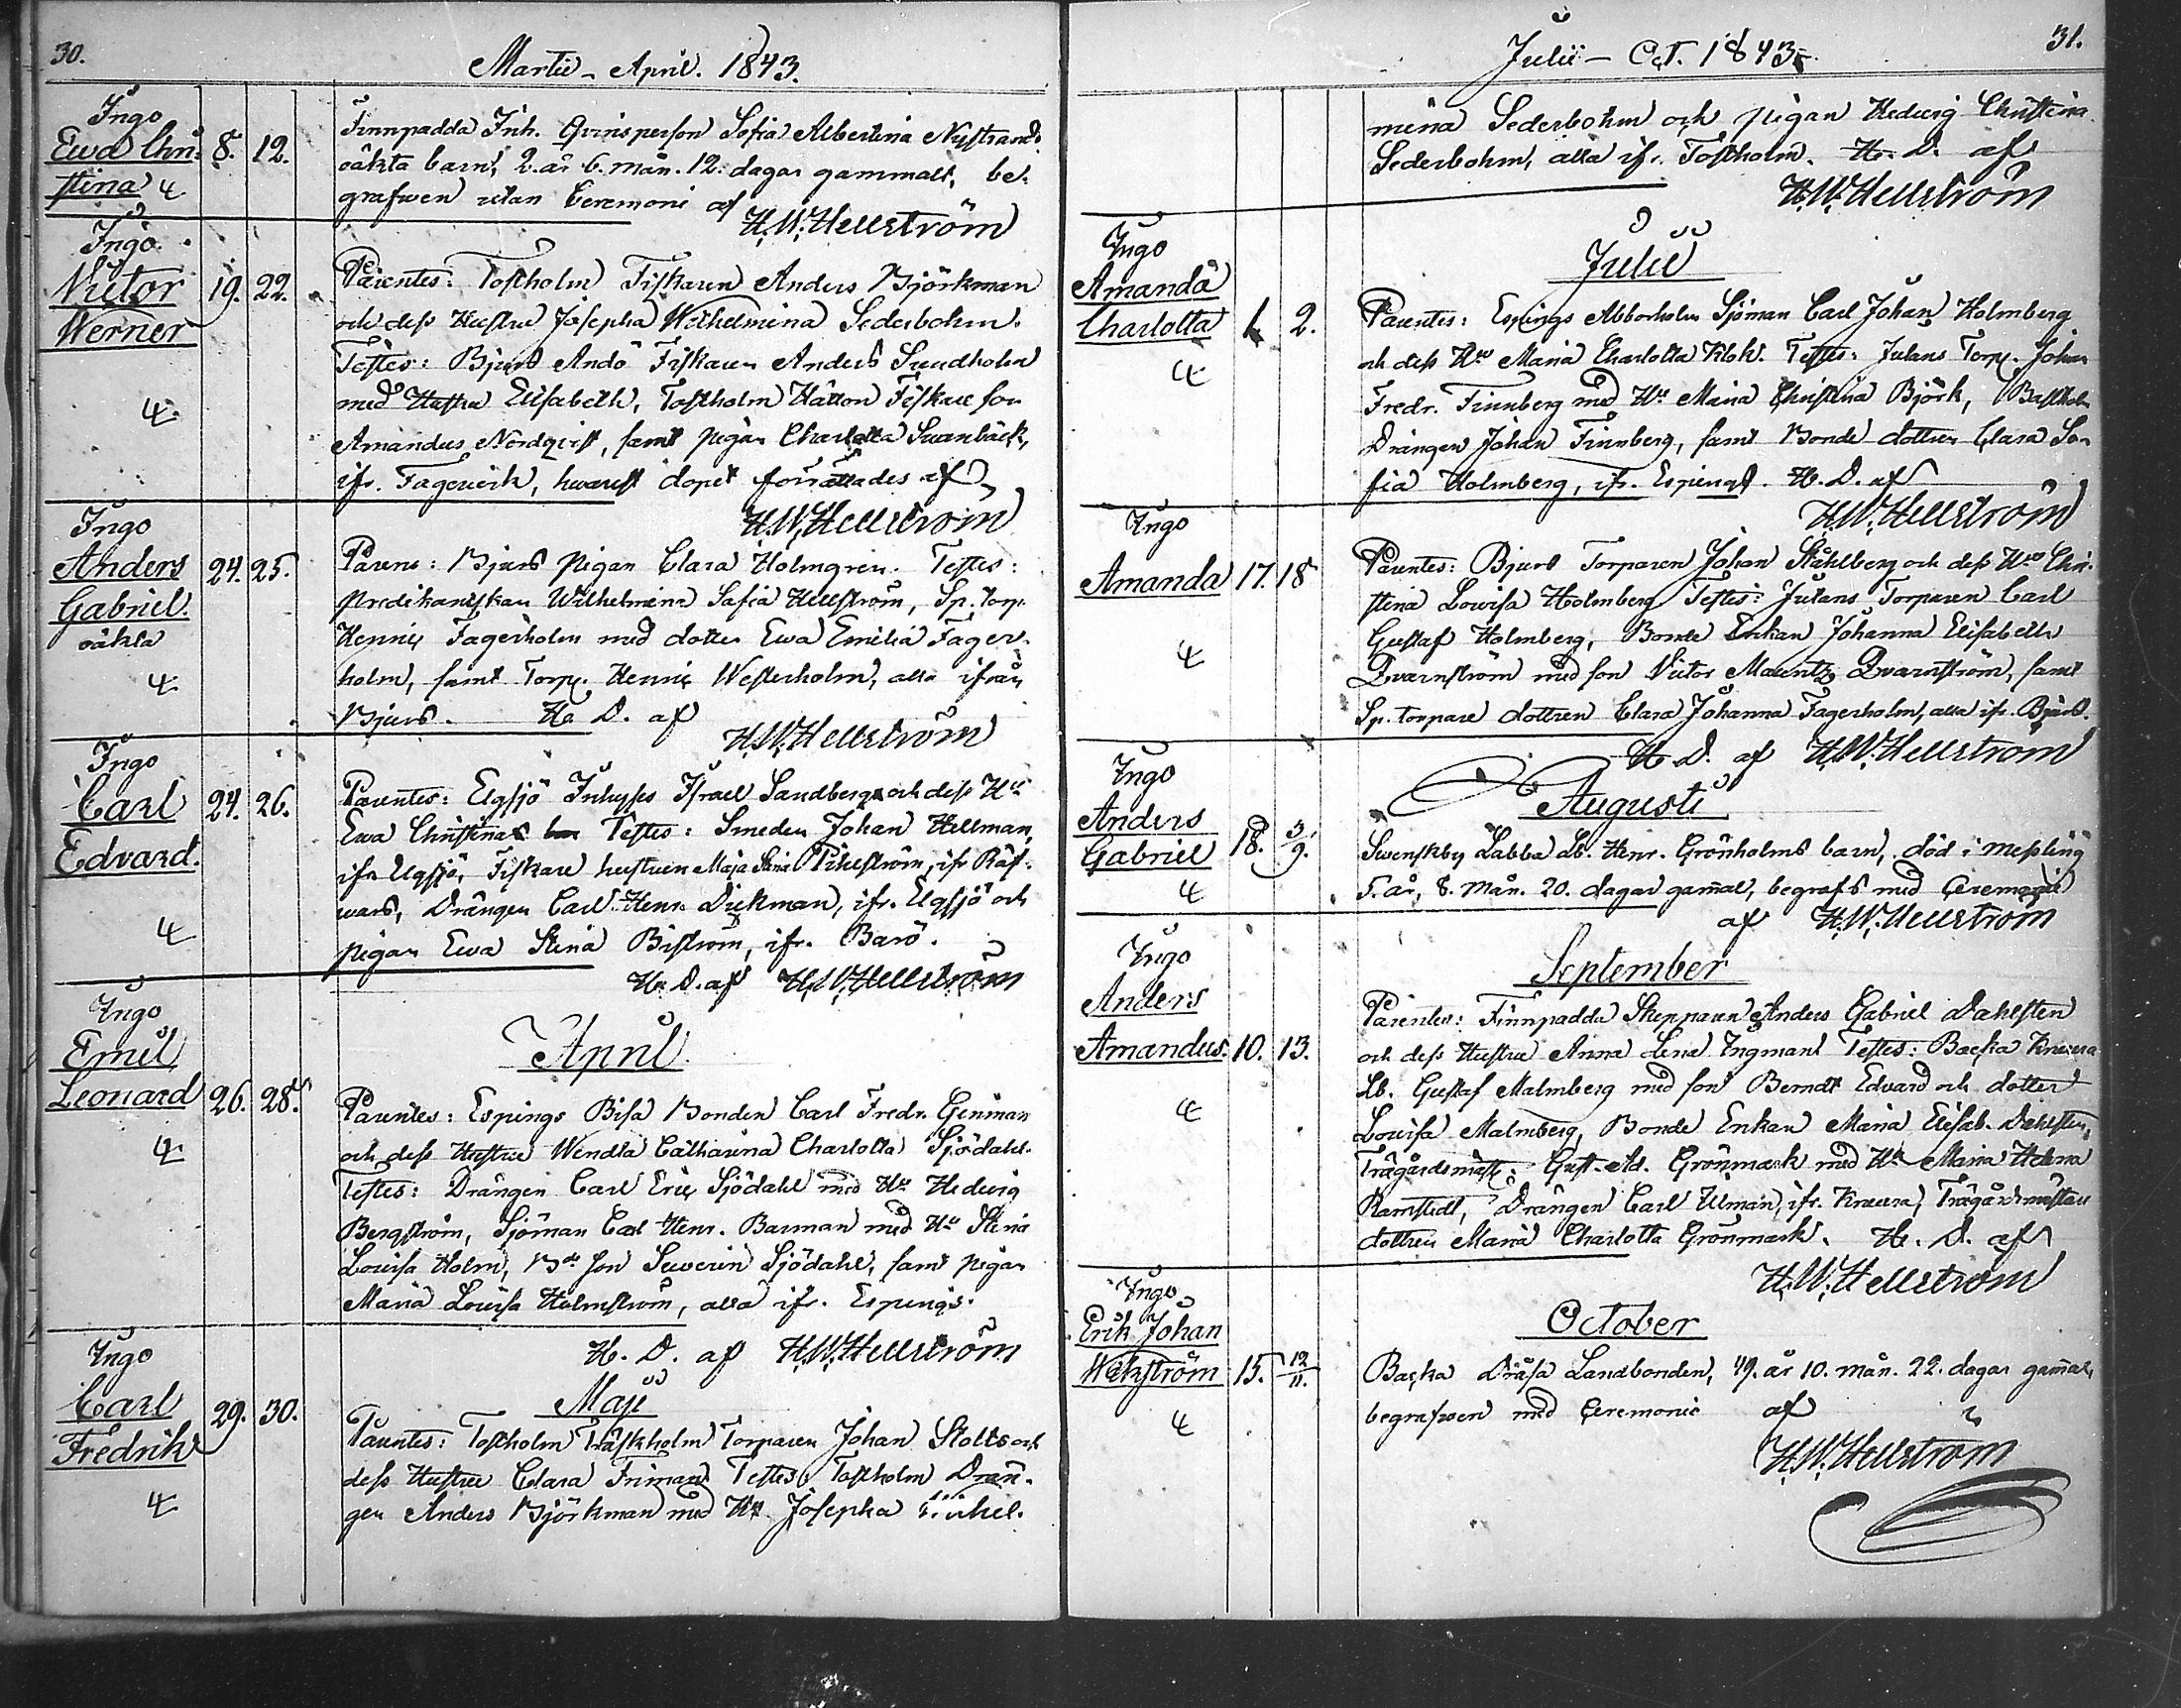 30.
Martii - April. 1843.
Ingo
Ewa Chri-
stina
8. 12.
Finnpadda Inh. Qvinsperson Sofia Albertina Nystrands
oäkta barn, 2. år 6. mån. 12. dagar gammalt, be-
grafwen utan Ceremoni af
H.W.Hellström
Ingo
Victor
Werner
19. 22.
Parentes: Tostholm Fiskaren Anders Björkman
och dess Hustru Josepha Wilhelmina Sederbohm.
Testes: Bjurs Andö Fiskaren Anders Sundholm
med Hustru Elisabeth, Tostholm Fiskare son
Amandus Nordqvist, samt pigan Charlotta Swanbäck,
ifr. Fagervik, hwarest dopet förrättades af
H.W.Hellström
Ingo
Anders
Gabriel
oäkta
24. 25.
Parens: Bjurs pigan Clara Holmgren. Testes:
Predikantskan Wilhelmina Sofia Hellström, Sp. torp.
Henric Fagerholm med dotter Ewa Emilia Fager-
holm, samt Torp. Henric Westerholm, alla ifrån
Bjurs. H. D. af
H.W.Hellström
Ingo
Carl
Edvard.
24. 26.
Parentes: Elgsjö Inhyses Israel Sandberg och dess Hu
Ewa Christina Testes: Smeden Johan Hellman,
ifr. Elgsjö, Fiskare hustrun Maja Stina, ifr Räf-
wars, Drängen Carl Henr. Dickman, ifr. Elgsjö och
pigan Ewa Stina Biström, ifr. Barö.
H. D. af H.W.Hellström
April.
Ingo
Emil
Leonard
26. 28.
Parentes: Espings Bisa Bonden Carl Fredr. Genman
och dess Hustru Wendla Catharina Charlotta Sjödahl.
Testes: Drängen Carl Eric Sjödahl med Hu Hedvig
Bergström, Sjöman Carl Henr. Barman med Hu Stina
Lovisa Holm, Bde son Severin Sjödahl, samt pigan
Maria Lovisa Holmström, alla ifr. Espings.
H. D. af H.W.Hellström
Maji
Ingo
Carl
Fredrik
29. 30.
Parentes: Tostholm Träskholm Torparen Johan Stolts och
dess Hustru Clara Friman Testes: Tostholm Drän-
gen Anders Björkman med Hu Josepha Wilhel-
31.
Julii - Oct. 1843.
mina Sederbohm och pigan Hedvig Christina
Sederbohm, alla ifr. Tostholm. H. D. af
H.W.Hellström
Julii
Ingo
Amanda
Charlotta
1. 2.
Parentes: Espings Abborholm Sjöman Carl Johan Holmberg
och dess Hu Maria Charlotta Klok. Testes: Julans Torp. Johan
Fredr. Finnberg med Hu Maria Christina Björk, Bastholm
Drängen Johan Finnberg, samt Bonde dottren Clara So-
fia Holmberg, ifr. Espings. H. D. af
H.W.Hellström
Ingo
Amanda
17. 18
Parentes: Bjurs Torparen Johan Ståhlberg och dess Hu Chri-
stina Lovisa Holmberg Testes: Julans Torparen Carl
Gustaf Holmberg, Bonde Enkan Johanna Elisabeth
Qvarnström med son Victor Mauritz Qvarnström, samt
Sp. torpare dottren Clara Johanna Fagerholm, alla ifr. Bjurs.
H. D. af H.W.Hellström
Augusti
Ingo
Anders
Gabriel
18. 3/9.
Swenskby Labba Lb. Henr. Grönholms barn, död i messling
5. år, 8. mån. 20. dagar gamal, begrafs med Ceremonie
af H.W.Hellström
September
Ingo
Anders
Amandus.
10. 13.
Parentes: Finnpadda Skepparen Anders Gabriel Dahlsten
och dess Hustru Anna Lena Ingman Testes: Backa Knavra
Lb. Gustaf Malmberg med son Berndt Edvard och dotter
Lovisa Malmberg, Bonde Enkan Maria Elisab. Dahlsten,
Trägårdsmäst: Gust. Ad. Grönmark med Hu Maria Helena
Ramstedt, Drängen Carl Ulman, ifr. Knavra, Trägårdsmästare
dottren Maria Charlotta Grönmark. H. D. af
H.W.Hellström
October
Ingo
Erik Johan
Wikström
15. 12/11.
Backa Dräsa Landbonden, 49. år 10. mån. 22. dagar gamal,
begrafwen med Ceremonie af
H.W.Hellström